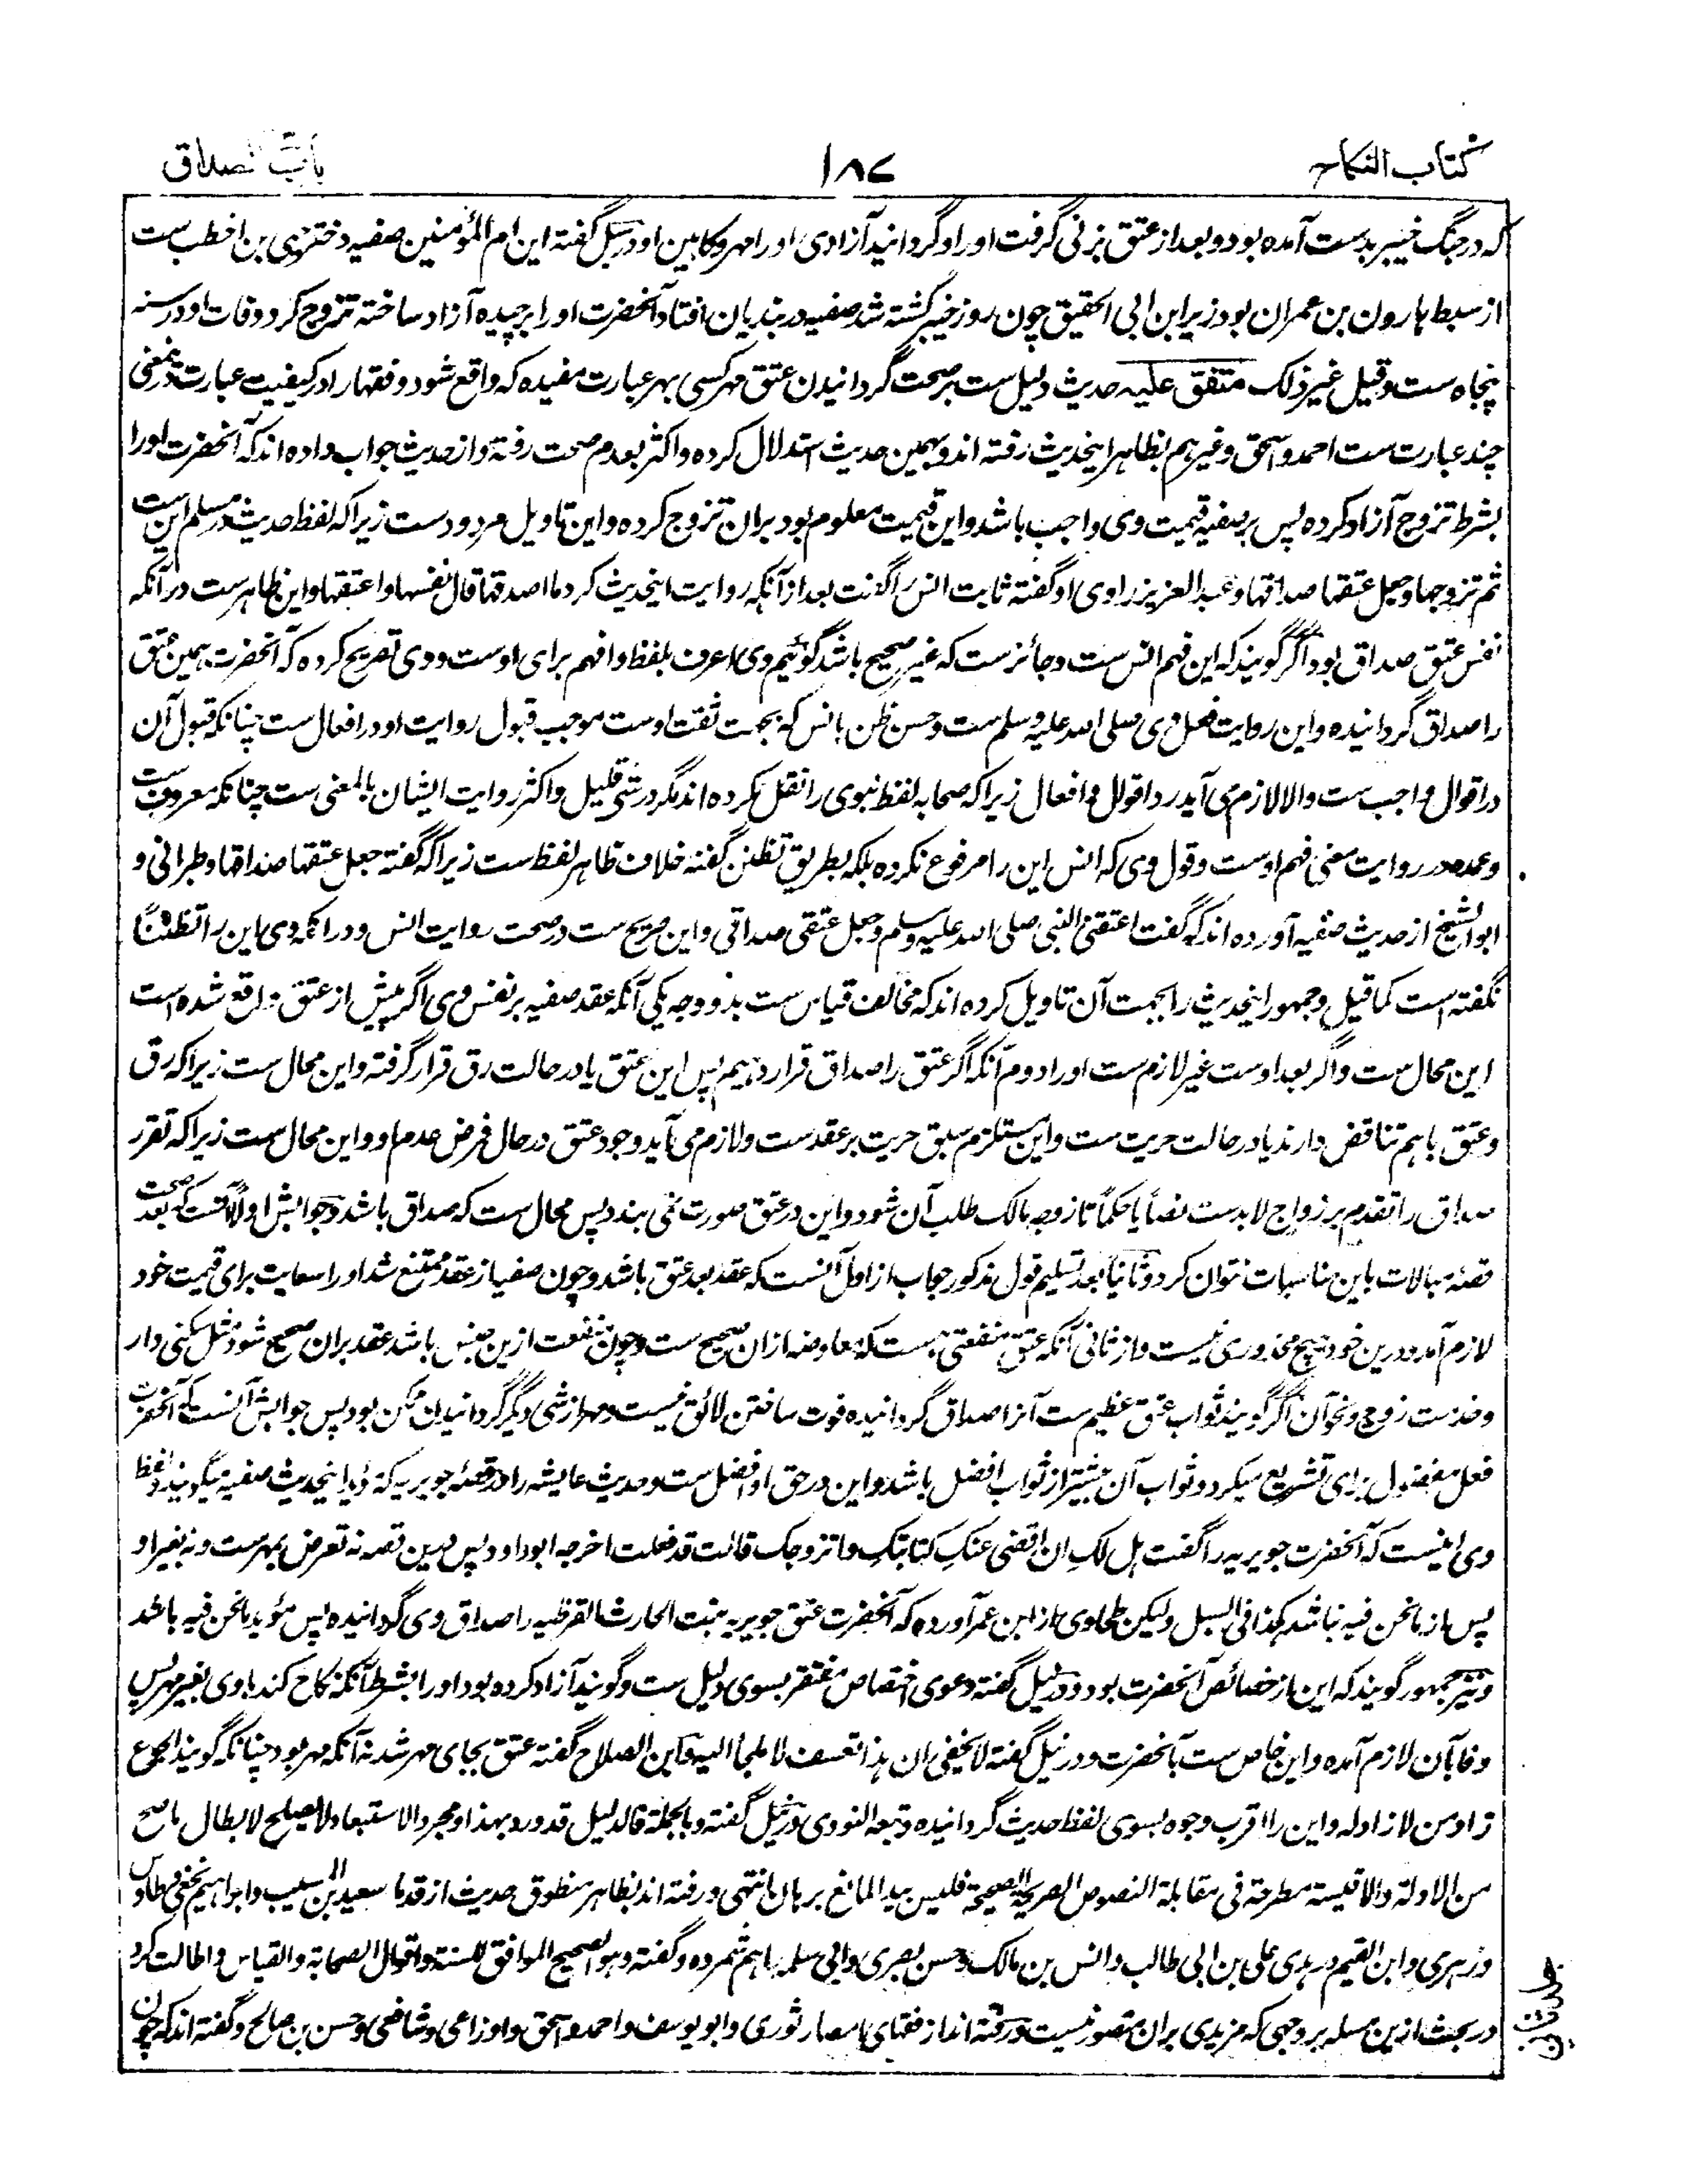 کتاب النکاح
۱۸۷
باب الصداق
که در جنگ خیبر بدست آمده بود و بعد از عتق بزنی گرفت او را و گردانید آزادی او را مهر و کابین او در سبل گفته این ام المؤمنین صفیه دختر حیی بن اخطب ست
از سبط هارون بن عمران بود زیر ابن ابی الحقیق چون روز خیبر کشته شد صفیه در بندیان افتاد آنحضرت او را برچیده آزاد ساخته تزوج کرد و وفات او در سنه
پنجاه ست و قیل غیر ذلک متفق علیه حدیث دلیل ست بر صحت گردانیدن عتق مهر کسی بهر عبارت مفیده که واقع شود و فقها را در کیفیت عبارت درینمعنی
چند عبارت ست احمد و اسحق و غیرهم بظاهر اینحدیث رفته اند و بهمین حدیث استدلال کرده و اکثر بعدم صحت رفته و از حدیث جواب داده اند که آنحضرت او را
بشرط تزوج آزاد کرده پس بر صفیه قیمت وی واجب باشد و این قیمت معلوم بود بران تزوج کرده و این تاویل مردود ست زیرا که لفظ حدیث در مسلم این ست
ثم تزوجها و جعل عتقها صداقها و عبد العزیز راوی او گفته ثابت انس را گفت بعد از آنکه روایت اینحدیث کرد ما اصدقها قال نفسها و اعتقها و این ظاهر ست در آنکه
نفس عتق صداق بود و اگر گویند که این فهم انس ست و جائز ست که غیر صحیح باشد گوئیم وی اعرف بلفظ و افهم برای اوست و وی تصریح کرده که آنحضرت همین عتق
را صداق گردانیده و این روایت فعل وی صلی الله علیه وسلم ست و حسن ظن بانس که بجهت ثقت اوست موجب قبول روایت او در افعال ست چنانکه قبول آن
در اقوال واجب ست و الا لازم می آید رد اقوال و افعال زیرا که صحابه لفظ نبوی را نقل نکرده اند مگر در شئ قلیل و اکثر روایت ایشان بالمعنی ست چنانکه معروف ست
و عمده در روایت معنی فهم اوست و قول وی که انس این را مرفوع نکرده بلکه بطریق تظنن گفته خلاف ظاهر لفظ ست زیرا که گفته جعل عتقها صداقها و طبرانی و
ابو الشیخ از حدیث صفیه آورده اند که گفت اعتقنی النبی صلی الله علیه وسلم و جعل عتقی صداقی و این صریح ست در صحت روایت انس و در آنکه وی این را تظننا
نگفته است کما قیل و جمهور اینحدیث را بجهت آن تاویل کرده اند که مخالف قیاس ست بدو وجه یکی آنکه عقد صفیه بر نفس وی اگر پیش از عتق واقع شده است
این محال ست و اگر بعد اوست غیر لازم ست او را دوم آنکه اگر عتق را صداق قرار دهیم پس این عتق یا در حالت رق قرار گرفته و این محال ست زیرا که رق
و عتق باهم تناقض دارند یا در حالت حریت ست و این مستلزم سبق حریت بر عقد ست و لازم می آید وجود عتق در حال فرض عدم او و این محال ست زیرا که تقرر
صداق را تقدم بر زواج لابد ست نصا یا حکما تا زوجه مالک طلب آن شود و این در عتق صورت نمی بندد پس محال ست که صداق باشد و جوابش اولا آنست که بعد صحت
قصه مبالات باین مناسبات نتوان کرد و ثانیا بعد تسلیم قول مذکور جواب از اول آنست که عقد بعد عتق باشد و چون صفیه از عقد ممتنع شد او را سعایت برای قیمت خود
لازم آمد و درین خود هیچ محذوری نیست و از ثانی آنکه عتق منفعتی ست که معاوضه ازان صحیح ست و چون منفعت ازین جنس باشد عقد بران صحیح شود مثل سکنی دار
و خدمت زوج و نحو آن اگر گویند ثواب عتق عظیم ست آنرا صداق گردانیده فوت ساختن لائق نیست و مهر از شئ دیگر گردانیدن ممکن بود پس جوابش آنست که آنحضرت
فعل مفضول برای تشریع میکرد و ثواب آن بیشتر از ثواب افضل باشد و این در حق او افضل ست و حدیث عایشه را در قصه جویریه که مؤید اینحدیث صفیه میگویند و لفظ
وی اینست که آنحضرت جویریه را گفت هل لکِ ان اقضی عنکِ کتابتکِ و اتزوجک قالت قد فعلت اخرجه ابو داود پس درین قصه نه تعرض بمهر ست و نه بغیر او
پس از ما نحن فیه نباشد کذا فی السبل و لیکن طحاوی از ابن عمر آورده که آنحضرت عتق جویریه بنت الحارث القرظیه را صداق وی گردانیده پس مؤید ما نحن فیه باشد
و نیز جمهور گویند که این از خصائص آنحضرت بود و در نیل گفته دعوی اختصاص مفتقر بسوی دلیل ست و گویند آزاد کرده بود او را بشرط آنکه نکاح کند با وی بغیر مهر پس
وفا بآن لازم آمده و این خاص ست بآنحضرت و در نیل گفته لا یخفی ان هذا تعسف لا ملجأ الیه و ابن الصلاح گفته عتق بجای مهر شد نه آنکه مهر بود چنانکه گویند الجوع
زاد من لا زاد له و این را اقرب وجوه بسوی لفظ حدیث گردانیده و تبعه النووی و در نیل گفته و بالجملة فالدلیل قد ورد بهذا و مجرد الاستبعاد لا یصلح لابطال ما صح
من الادلة و الاقیسة مطرحة فی مقابلة النصوص الصریحة الصحیحة فلیس بید المانع برهان انتهی و رفته اند بظاهر منطوق حدیث از قدما سعید بن المسیب و ابراهیم نخعی و طاوس
و زهری و ابن القیم در هدی علی بن ابی طالب و انس بن مالک و حسن بصری و ابی سلمه را هم شمرده و گفته و هو الصحیح الموافق للسنة و اقوال الصحابة و القیاس و اطالت کرد
در بحث ازین مسئله بر وجهی که مزیدی بران متصور نیست و رفته اند از فقهای امصار ثوری و ابو یوسف و احمد و اسحق و اوزاعی و شافعی و حسن بن صالح و گفته اند که چون